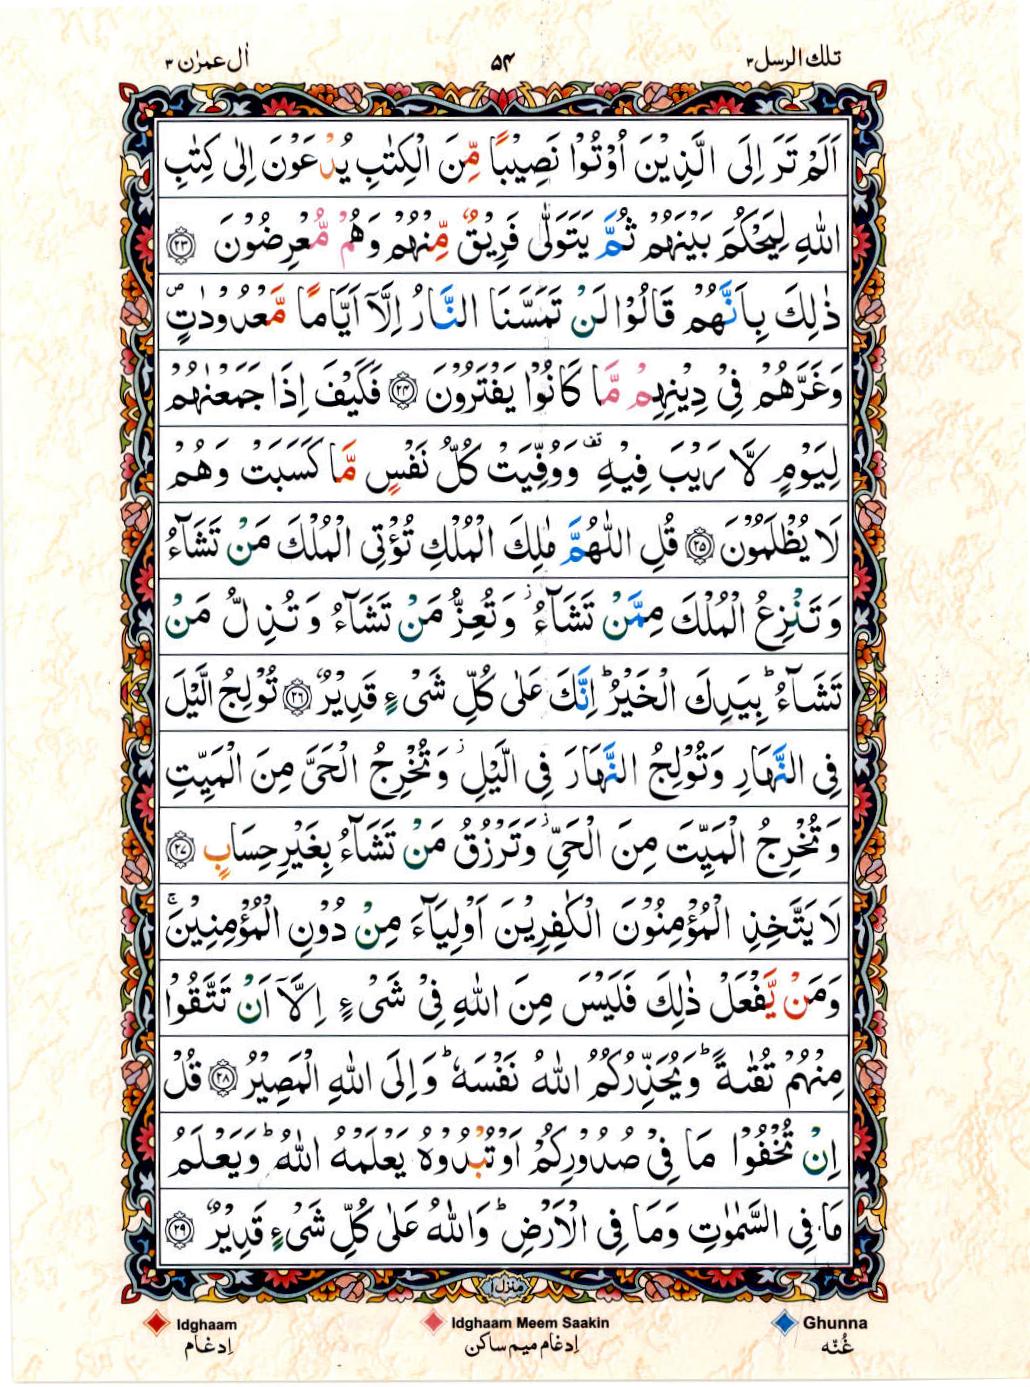 تلك الرسل ٣ ٥٤ اٰل عمرٰن ٣
اَلَمْ تَرَ اِلَى الَّذِيْنَ اُوْتُوْا نَصِيْبًا مِّنَ الْكِتٰبِ يُدْعَوْنَ اِلٰى كِتٰبِ
اللّٰهِ لِيَحْكُمَ بَيْنَهُمْ ثُمَّ يَتَوَلّٰى فَرِيْقٌ مِّنْهُمْ وَهُمْ مُّعْرِضُوْنَ ﴿٢٣﴾
ذٰلِكَ بِاَنَّهُمْ قَالُوْا لَنْ تَمَسَّنَا النَّارُ اِلَّاۤ اَيَّامًا مَّعْدُوْدٰتٍ ۖ
وَغَرَّهُمْ فِيْ دِيْنِهِمْ مَّا كَانُوْا يَفْتَرُوْنَ ﴿٢٤﴾ فَكَيْفَ اِذَا جَمَعْنٰهُمْ
لِيَوْمٍ لَّا رَيْبَ فِيْهِ ۗ وَوُفِّيَتْ كُلُّ نَفْسٍ مَّا كَسَبَتْ وَهُمْ
لَا يُظْلَمُوْنَ ﴿٢٥﴾ قُلِ اللّٰهُمَّ مٰلِكَ الْمُلْكِ تُؤْتِى الْمُلْكَ مَنْ تَشَآءُ
وَتَنْزِعُ الْمُلْكَ مِمَّنْ تَشَآءُ ز وَتُعِزُّ مَنْ تَشَآءُ وَتُذِلُّ مَنْ
تَشَآءُ ؕ بِيَدِكَ الْخَيْرُ ؕ اِنَّكَ عَلٰى كُلِّ شَىْءٍ قَدِيْرٌ ﴿٢٦﴾ تُوْلِجُ الَّيْلَ
فِى النَّهَارِ وَتُوْلِجُ النَّهَارَ فِى الَّيْلِ ز وَتُخْرِجُ الْحَىَّ مِنَ الْمَيِّتِ
وَتُخْرِجُ الْمَيِّتَ مِنَ الْحَىِّ ز وَتَرْزُقُ مَنْ تَشَآءُ بِغَيْرِ حِسَابٍ ﴿٢٧﴾
لَا يَتَّخِذِ الْمُؤْمِنُوْنَ الْكٰفِرِيْنَ اَوْلِيَآءَ مِنْ دُوْنِ الْمُؤْمِنِيْنَ ۚ
وَمَنْ يَّفْعَلْ ذٰلِكَ فَلَيْسَ مِنَ اللّٰهِ فِىْ شَىْءٍ اِلَّاۤ اَنْ تَتَّقُوْا
مِنْهُمْ تُقٰىةً ؕ وَيُحَذِّرُكُمُ اللّٰهُ نَفْسَهٗ ؕ وَاِلَى اللّٰهِ الْمَصِيْرُ ﴿٢٨﴾ قُلْ
اِنْ تُخْفُوْا مَا فِىْ صُدُوْرِكُمْ اَوْ تُبْدُوْهُ يَعْلَمْهُ اللّٰهُ ؕ وَيَعْلَمُ
مَا فِى السَّمٰوٰتِ وَمَا فِى الْاَرْضِ ؕ وَاللّٰهُ عَلٰى كُلِّ شَىْءٍ قَدِيْرٌ ﴿٢٩﴾
منزل ١
Idghaam Idghaam Meem Saakin Ghunna
اِدغام اِدغام میم ساکن غُنّه